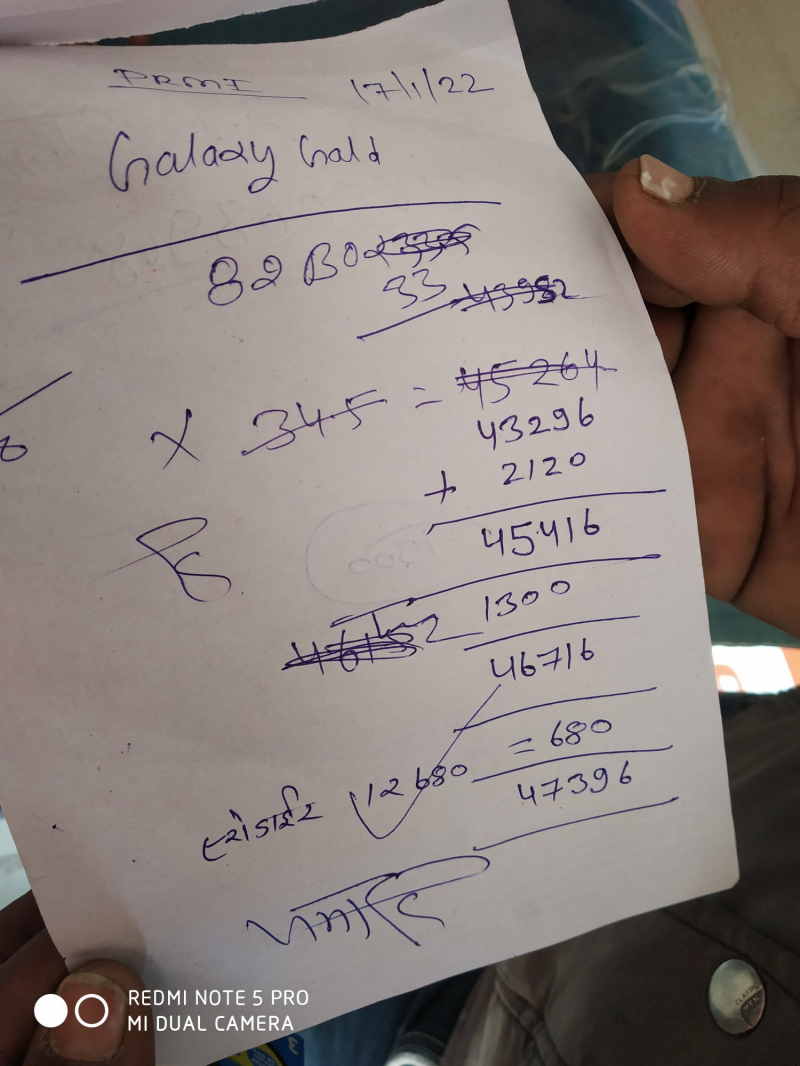 PRMI 17/1/22
Galaxy Gald
82 BOx
33 43982
X 345 = 45264
43296
+ 2120
45416
1300
46152
46716
= 680
12680
47396
REDMI NOTE 5 PRO
MI DUAL CAMERA